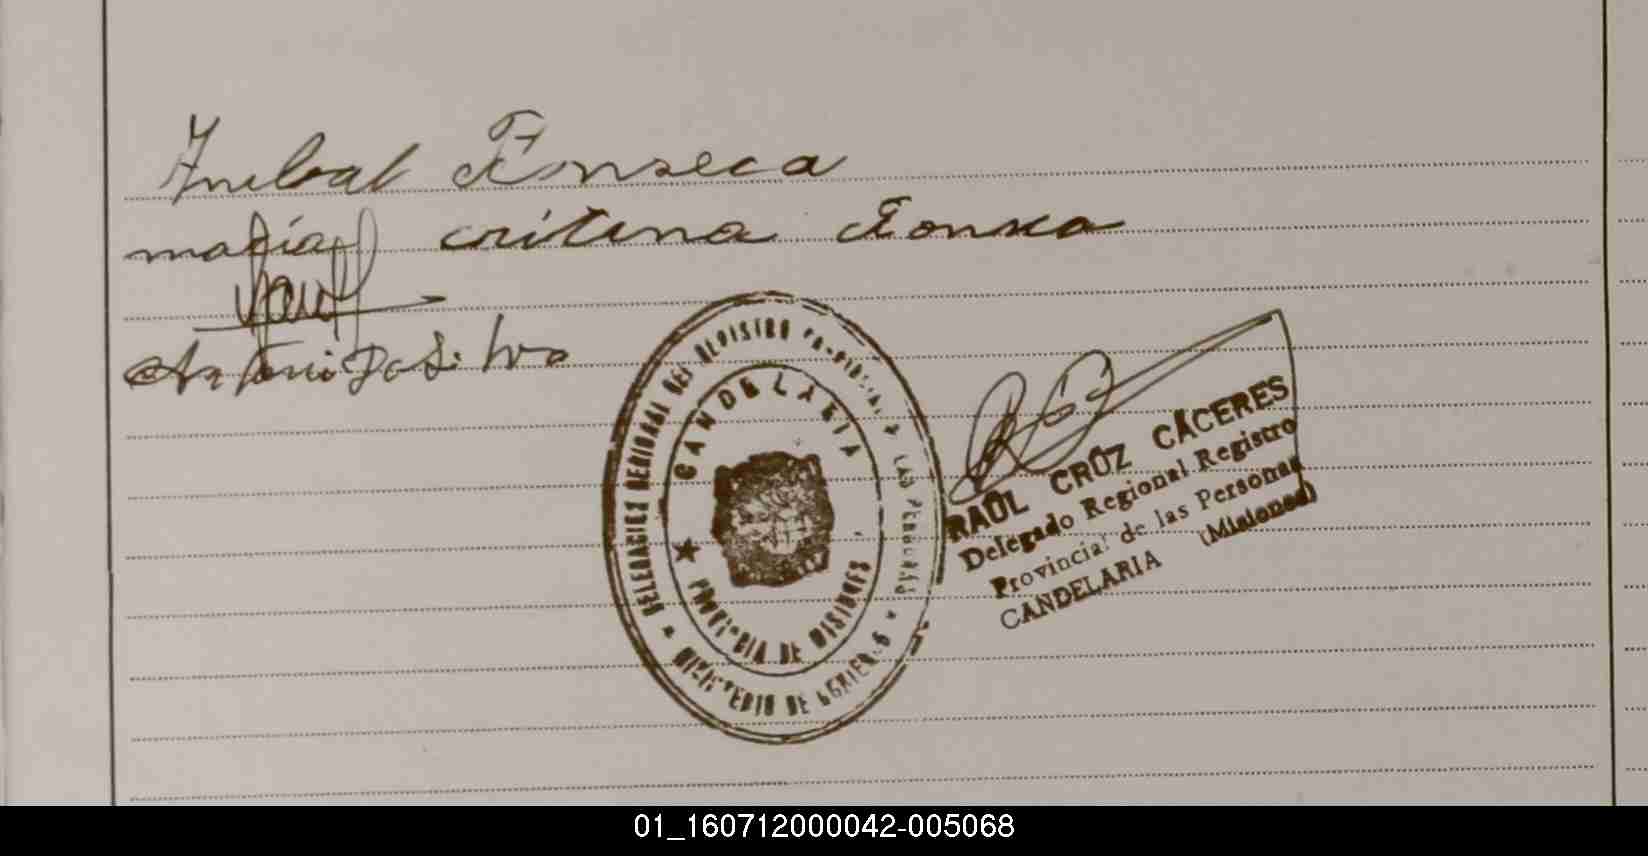 Fonseca
maria critina Fonsca
Antonio Da Silva
DELEGACION REGIONAL DEL REGISTRO PROVINCIAL DE LAS PERSONAS
CANDELARIA
PROVINCIA DE MISIONES
MINISTERIO DE
RAUL CRUZ CACERES
Delegado Regional Registro
Provincial de las Personas
CANDELARIA (Misiones)
01_160712000042-005068